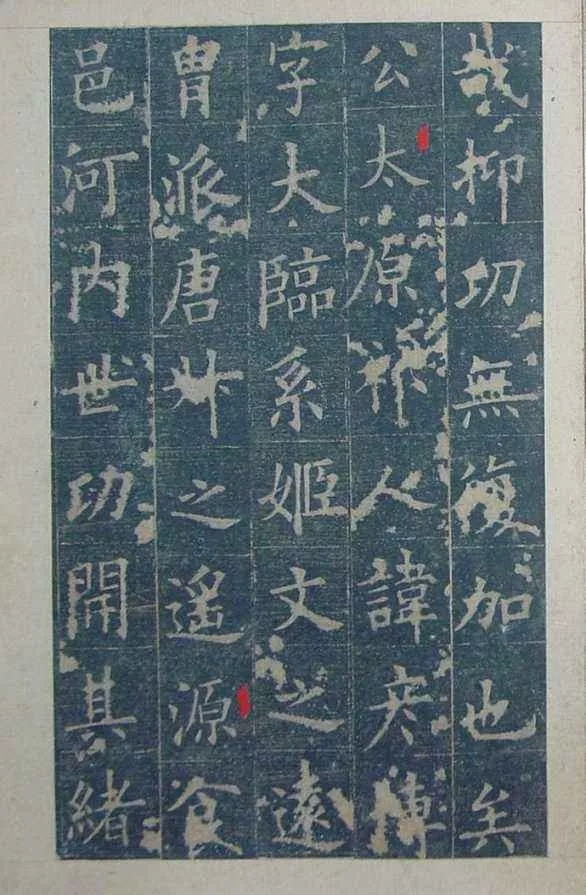 哉抑功無復加也矣
公太原祁人諱彥博
字大臨系姬文之遠
胄派唐叔之遙源食
邑河內世功開其緒